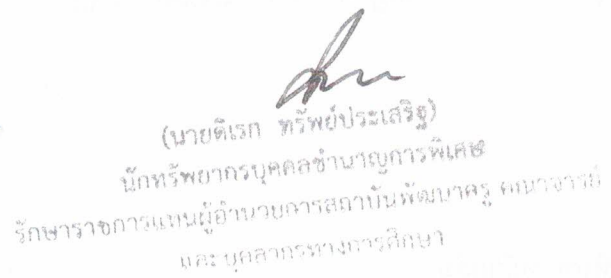 (นายดิเรก ทรัพย์ประเสริฐ)
นักทรัพยากรบุคคลชำนาญการพิเศษ
รักษาราชการแทนผู้อำนวยการสถาบันพัฒนาครู คณาจารย์
และบุคลากรทางการศึกษา